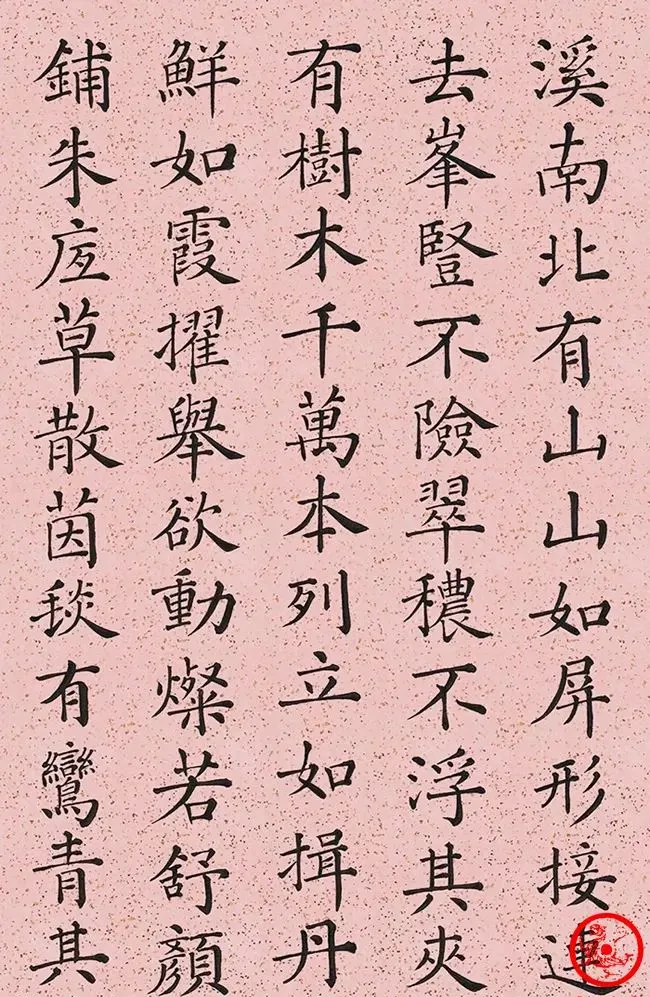 溪南北有山山如屏形接連
去峯豎不險翠穠不浮其夾
有樹木千萬本列立如揖丹
鮮如霞擢舉欲動燦若舒顏
鋪朱庋草散茵毯有鸞青其